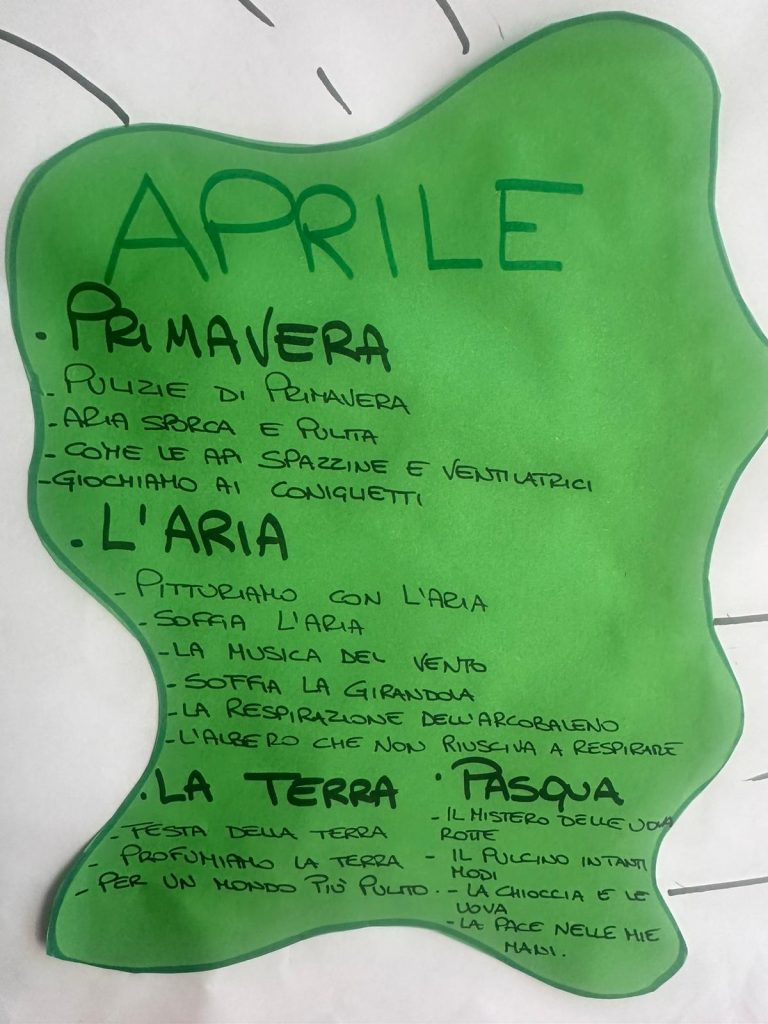 APRILE
. PRIMAVERA
- PULIZIE DI PRIMAVERA
- ARIA SPORCA E PULITA
- COME LE API SPAZZINE E VENTILATRICI
- GIOCHIAMO AI CONIGLIETTI
. L'ARIA
- PITTURIAMO CON L'ARIA
- SOFFIA L'ARIA
- LA MUSICA DEL VENTO
- SOFFIA LA GIRANDOLA
- LA RESPIRAZIONE DELL'ARCOBALENO
- L'ALBERO CHE NON RIUSCIVA A RESPIRARE
. LA TERRA
- FESTA DELLA TERRA
- PROFUMIAMO LA TERRA
- PER UN MONDO PIÙ PULITO.
. PASQUA
- IL MISTERO DELLE UOVA
ROTTE
- IL PULCINO IN TANTI
MODI
- LA CHIOCCIA E LE
UOVA
- LA PACE NELLE MIE
MANI.